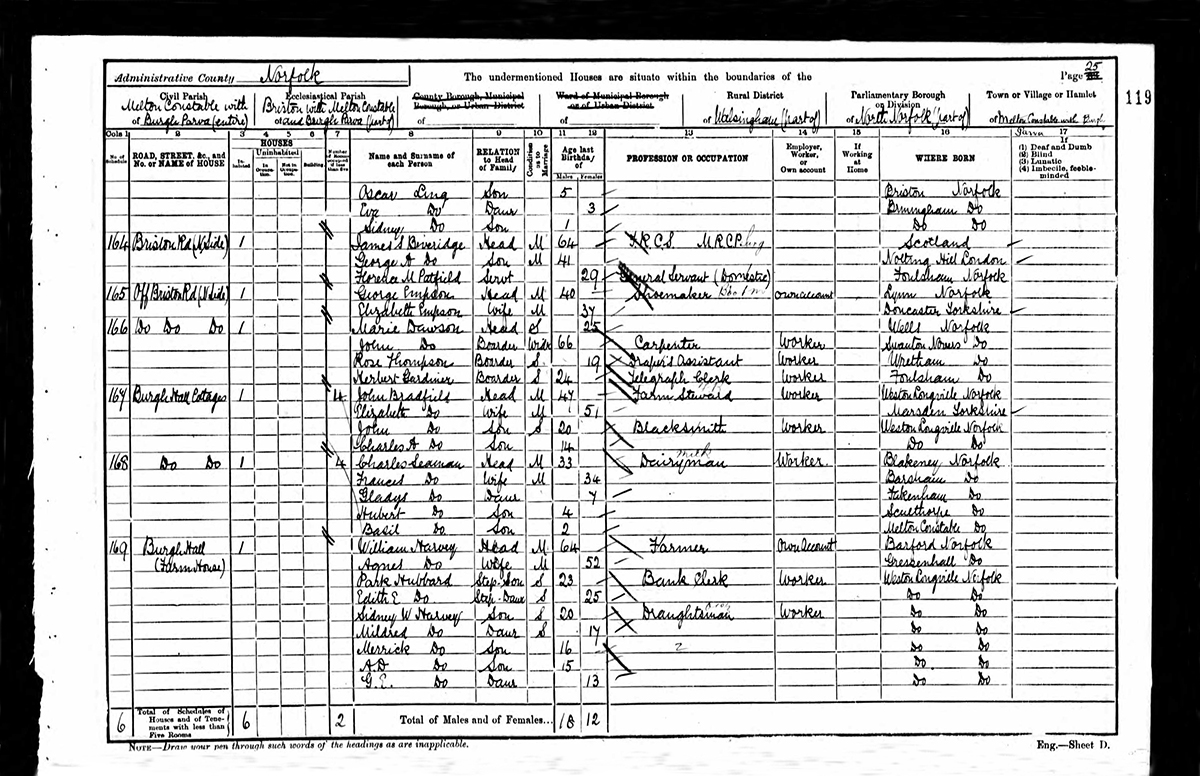 Administrative County Norfolk
The undermentioned Houses are situate within the boundaries of the
Page 25
119
Civil Parish
Melton Constable with
of Burgh Parva (entire)
Ecclesiastical Parish
Briston with Melton Constable
of and Burgh Parva (part of)
County Borough, Municipal
Borough, or Urban District
of
Ward of Municipal Borough
or of Urban District
of
Rural District
of Walsingham (part of)
Parliamentary Borough
or Division
of North Norfolk (part of)
Town or Village or Hamlet
of Melton Constable with Burgh
Parva
Cols 1 2 3 4 5 6 7 8 9 10 11 12 13 14 15 16 17
No. of Schedule
ROAD, STREET, &c., and No. or NAME of HOUSE
HOUSES
Inhabited
Uninhabited
In Occupation
Not in Occupation
Building
Number of Rooms occupied if less than five
Name and Surname of each Person
RELATION to Head of Family
Condition as to Marriage
Age last Birthday of
Males Females
PROFESSION OR OCCUPATION
Employer, Worker, or Own account
If Working at Home
WHERE BORN
(1) Deaf and Dumb
(2) Blind
(3) Lunatic
(4) Imbecile, feeble-minded
Oscar Ling Son 5 Briston Norfolk
Eva Do Daur 3 Birmingham Do
Sidney Do Son 1 Do Do
164 Briston Rd (N Side) 1 James S Beveridge Head M 64 F.R.C.S. M.R.C.P. Scotland
George A Do Son M 41 Notting Hill London
Florence M Patfield Servt 29 General Servant (Domestic) Foulsham Norfolk
165 Off Briston Rd (N Side) 1 George Empson Head M 40 Shoemaker own account Lynn Norfolk
Elizabeth Empson Wife M 37 Doncaster Yorkshire
166 Do Do Do 1 Marie Dawson Head S 25 Wells Norfolk
John Do Boarder Widr 66 Carpenter Worker Swanton Novers Do
Rose Thompson Boarder S 19 Draper's Assistant Worker Wretham Do
Herbert Gardiner Boarder S 24 Telegraph Clerk Worker Foulsham Do
167 Burgh Hall Cottages 1 4 John Bradfield Head M 47 Farm Steward Worker Weston Longville Norfolk
Elizabeth Do Wife M 51 Marsden Yorkshire
John Do Son S 20 Blacksmith Worker Weston Longville Norfolk
Charles A Do Son 14 Do Do
168 Do Do 1 4 Charles Seaman Head M 33 Dairyman Milk Worker Blakeney Norfolk
Frances Do Wife M 34 Barsham Do
Gladys Do Daur 7 Fakenham Do
Hubert Do Son 4 Sculthorpe Do
Basil Do Son 2 Melton Constable Do
169 Burgh Hall 1 William Harvey Head M 64 Farmer Own account Barford Norfolk
(Farm House) Agnes Do Wife M 52 Gressenhall Do
Park Hubbard Step-Son S 23 Bank Clerk Worker Weston Longville Norfolk
Edith E Do Step-Daur S 25 Do Do
Sidney W Harvey Son S 20 Draughtsman Worker Do Do
Mildred Do Daur S 17 Do Do
Merrick Do Son 16 Do Do
A D Do Son 15 Do Do
G. E. Do Daur 13 Do Do
6 Total of Schedules of Houses and of Tenements with less than Five Rooms 6 2 Total of Males and of Females... 18 12
NOTE—Draw your pen through such words of the headings as are inapplicable.
Eng.—Sheet D.